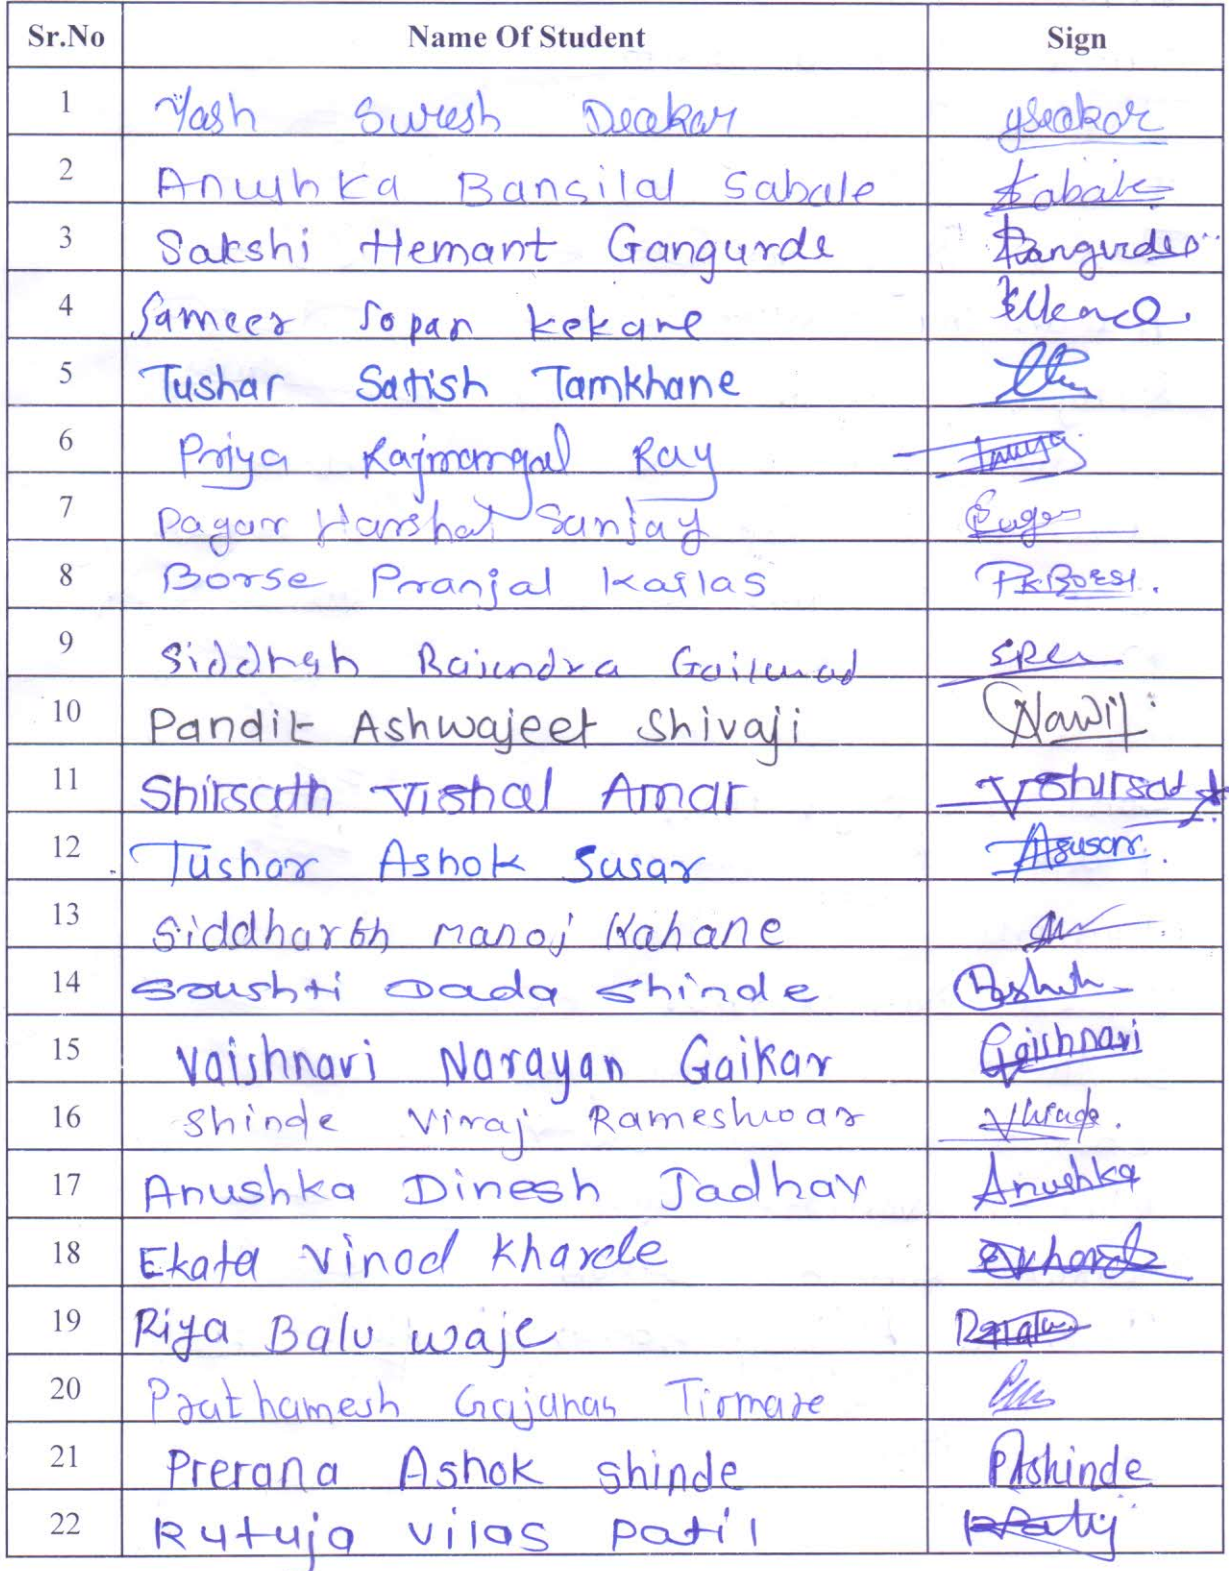 Sr.No Name Of Student Sign
1 Yash Suresh Deokar
2 Anushka Bansilal Sabale
3 Sakshi Hemant Gangurde
4 Sameer Sopan Kekane
5 Tushar Satish Tamkhane
6 Priya Rajmangal Ray
7 Pagar Harshal Sanjay
8 Borse Pranjal Kailas PKBorse.
9 Siddhesh Rajendra Gaikwad
10 Pandit Ashwajeet Shivaji
11 Shirsath Vishal Amar VShirsat
12 Tushar Ashok Susar
13 Siddharth Manoj Kahane
14 Srushti Dada Shinde
15 Vaishnavi Narayan Gaikar Gaishnavi
16 Shinde Viraj Rameshwar
17 Anushka Dinesh Jadhav Anushka
18 Ekata Vinod Kharde
19 Riya Balu waje
20 Prathamesh Gajanan Tirmare
21 Prerana Ashok Shinde PAshinde
22 Rutuja Vilas Patil